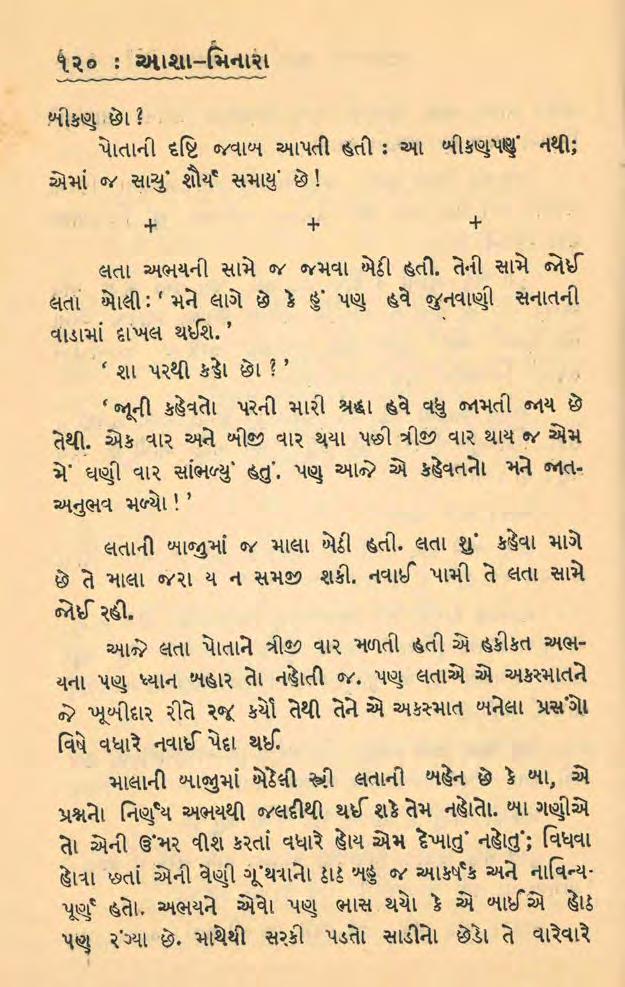 ૧૨૦ : આશા–મિનારા
બીકણ છો ?
પોતાની દૃષ્ટિ જવાબ આપતી હતી : આ બીકણપણું નથી;
એમાં જ સાચું શૌર્ય સમાયું છે !
+ + +
લતા અભયની સામે જ જમવા બેઠી હતી. તેની સામે જોઈ
લતા બોલી : ‘ મને લાગે છે કે હું પણ હવે જુનવાણી સનાતની
વાડામાં દાખલ થઈશ. ’
‘ શા પરથી કહો છો ? ’
‘ જૂની કહેવતો પરની મારી શ્રદ્ધા હવે વધુ જામતી જાય છે
તેથી. એક વાર અને બીજી વાર થયા પછી ત્રીજી વાર થાય જ એમ
મેં ઘણી વાર સાંભળ્યું હતું. પણ આજે એ કહેવતનો મને જાત-
અનુભવ મળ્યો ! ’
લતાની બાજુમાં જ માલા બેઠી હતી. લતા શું કહેવા માગે
છે તે માલા જરા ય ન સમજી શકી. નવાઈ પામી તે લતા સામે
જોઈ રહી.
આજે લતા પોતાને ત્રીજી વાર મળતી હતી એ હકીકત અભ-
યના પણ ધ્યાન બહાર તો નહોતી જ. પણ લતાએ એ અકસ્માતને
જે ખૂબીદાર રીતે રજૂ કર્યો તેથી તેને એ અકસ્માત બનેલા પ્રસંગો
વિષે વધારે નવાઈ પેદા થઈ.
માલાની બાજુમાં બેઠેલી સ્ત્રી લતાની બહેન છે કે બા, એ
પ્રશ્નનો નિર્ણય અભયથી જલદીથી થઈ શકે તેમ નહોતો. બા ગણીએ
તો એની ઉંમર વીશ કરતાં વધારે હોય એમ દેખાતું નહોતું; વિધવા
હોવા છતાં એની વેણી ગૂંથવાનો ઠાઠ બહુ જ આકર્ષક અને નાવિન્ય-
પૂર્ણ હતો. અભયને એવો પણ ભાસ થયો કે એ બાઈએ હોઠ
પણ રંગ્યા છે. માથેથી સરકી પડતો સાડીનો છેડો તે વારેવારે